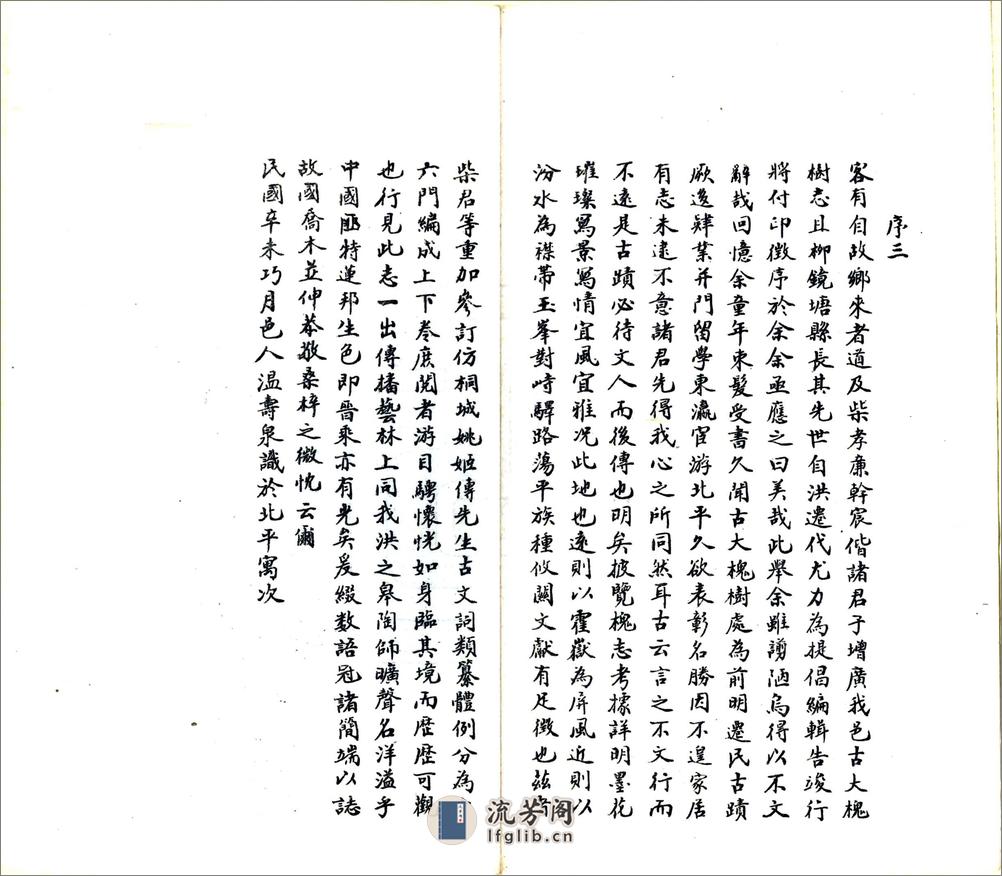 序三
客有自故鄉來者道及柴孝廉幹宸偕諸君子增廣我邑古大槐
樹志且柳鏡塘縣長其先世自洪遷代尤力為提倡編輯告竣行
將付印徵序於余余亟應之曰美哉此舉余雖謭陋烏得以不文
辭哉回憶余童年束髮受書久聞古大槐樹處為前明遷民古蹟
厥後肄業并門留學東瀛宦游北平久欲表彰名勝因不遑家居
有志未逮不意諸君先得我心之所同然耳古云言之不文行而
不遠是古蹟必待文人而後傳也明矣披覽槐志考據詳明墨花
璀璨寫景寫情宜風宜雅况此地也遠則以霍嶽為屏風近則以
汾水為襟帶玉峯對峙驛路蕩平族種攸關文獻有足徵也茲
柴君等重加參訂仿桐城姚姬傳先生古文詞類纂體例分為
六門編成上下卷庶閱者游目騁懷恍如身臨其境而歷歷可觀
也行見此志一出傳播藝林上同我洪之皋陶師曠聲名洋溢乎
中國匪特蓮邦生色即晉乘亦有光矣爰綴数語冠諸簡端以誌
故國喬木並伸恭敬桑梓之微忱云爾
民國辛未巧月邑人温壽泉識於北平寓次
流芳阁
lfglib.cn